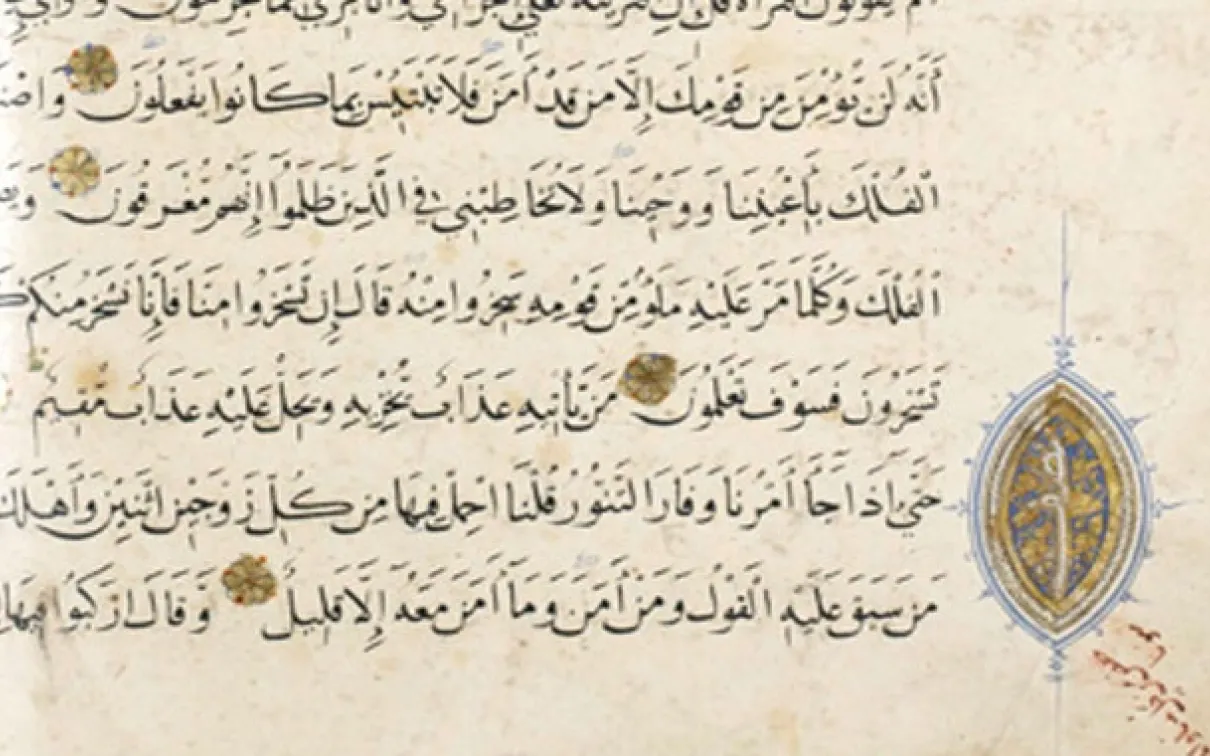 أم يقولون افتراه قل إن افتريته فعلي إجرامي وأنا بريء مما تجرمون
أَنَّهُ لَن يُؤْمِنَ مِن قَوْمِكَ إِلَّا مَن قَدْ أَمَنَ فَلَا تَبْتَئِسْ بِمَا كَانُوا يَفْعَلُونَ وَاصْنَ
الْفُلْكَ بِأَعْيُنِنَا وَوَحْيِنَا وَلَا تُخَاطِبْنِي فِي الَّذِينَ ظَلَمُوا إِنَّهُم مُّغْرَقُونَ وَيَصْ
الْفُلْكَ وَكُلَّمَا مَرَّ عَلَيْهِ مَلَؤٌ مِّن قَوْمِهِ سَخِرُوا مِنْهُ قَالَ إِن تَسْخَرُوا مِنَّا فَإِنَّا نَسْخَرُ مِنكُمْ كَ
تَسْخَرُونَ فَسَوْفَ تَعْلَمُونَ مَن يَأْتِيهِ عَذَابٌ يُخْزِيهِ وَيَحِلُّ عَلَيْهِ عَذَابٌ مُّقِيمٌ
حَتَّى إِذَا جَاَ أَمْرُنَا وَفَارَ التَّنُّورُ قُلْنَا احْمِلْ فِيهَا مِن كُلِّ زَوْجَيْنِ اثْنَيْنِ وَأَهْلَكَ
مَن سَبَقَ عَلَيْهِ الْقَوْلُ وَمَنْ أَمَنَ وَمَا أَمَنَ مَعَهُ إِلَّا قَلِيلٌ وَقَالَ ارْكَبُوا فِيهَا